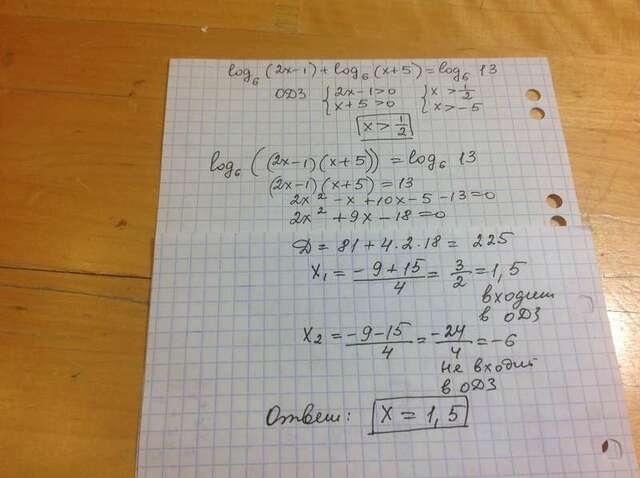 log₆(2x-1)+log₆(x+5)=log₆13
ОДЗ { 2x-1>0 { x>1/2
x+5>0 x>-5
x>1/2
log₆((2x-1)(x+5))=log₆13
(2x-1)(x+5)=13
2x²-x+10x-5-13=0
2x²+9x-18=0
D=81+4·2·18=225
X₁=(-9+15)/4=3/2=1,5
входит
в ОДЗ
X₂=(-9-15)/4=-24/4=-6
не входит
в ОДЗ
Ответ: X=1,5